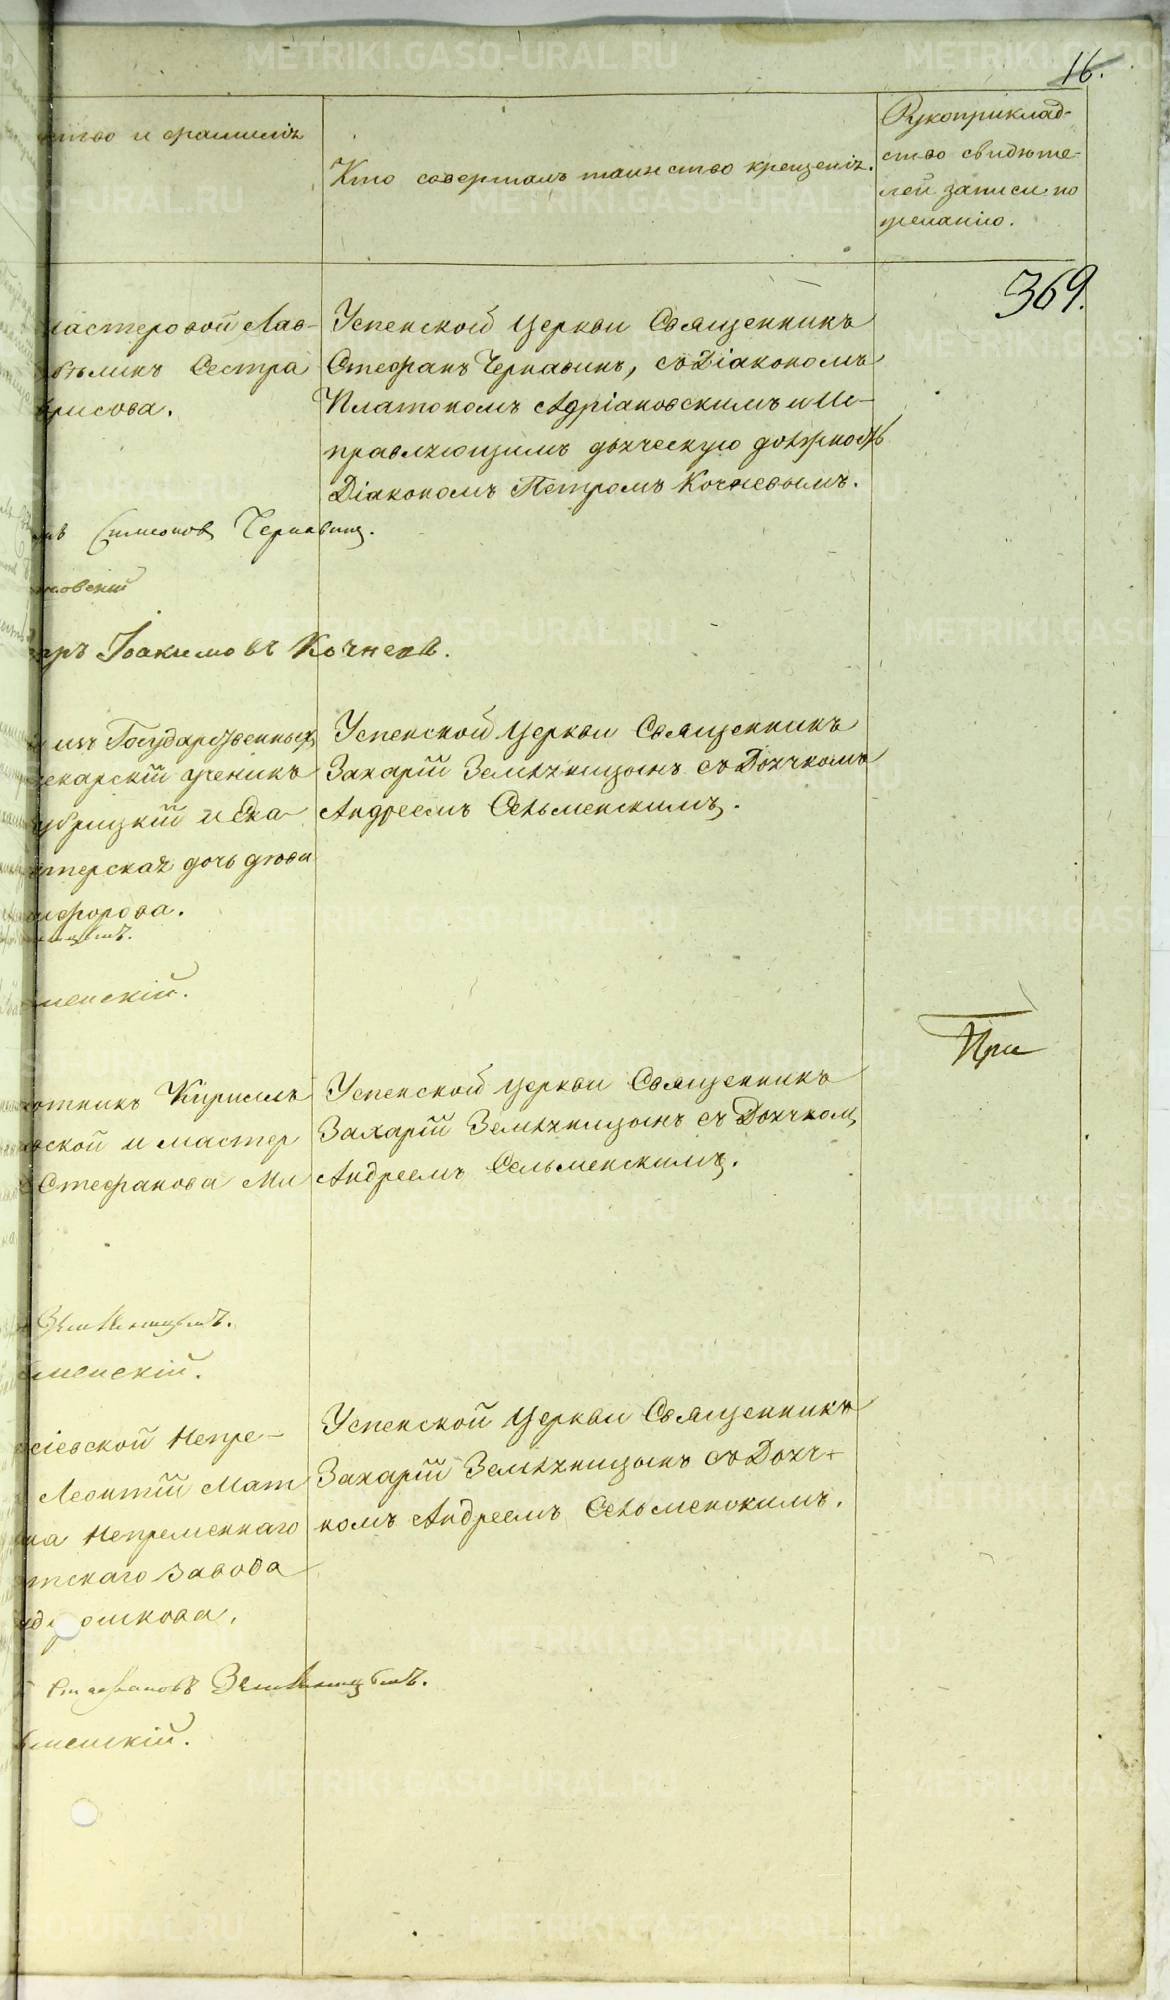 16.
ство и фамилія
Кто совершалъ таинство крещенія.
Рукоприклад-
ство свидѣте-
лей записи по
желанію.
369.
мастеровой Лав-
Сестра
Борисова.
Успенской Церкви Священникъ
Стефанъ Чернавинъ, съ Діакономъ
Платономъ Адріановскимъ и Ис-
правляющимъ дьяческую должность
Діакономъ Петромъ Кочневымъ.
Симеоновъ Чернавинъ.
новскій
Іоакимовъ Кочневъ.
изъ Государственныхъ
лекарскій ученикъ
убрицкій и Ека-
терская дочь дѣви
нифорова.
Успенской Церкви Священникъ
Захарій Земляницынъ съ Дьячкомъ
Андреемъ Сельменскимъ.
менскій.
При
отникъ Кириллъ
вской и мастер
Стефанова Ми
Успенской Церкви Священникъ
Захарій Земляницынъ съ Дьячком
Андреемъ Сельменскимъ.
Земляницынъ.
менскій.
сіевской Непре-
Леонтій Мат
на Непременнаго
тскаго завода
ошкова.
Успенской Церкви Священникъ
Захарій Земляницынъ съ Дьяч-
комъ Андреемъ Сельменскимъ.
Стефановъ Земляницынъ.
менскій.
METRIKI.GASO-URAL.RU